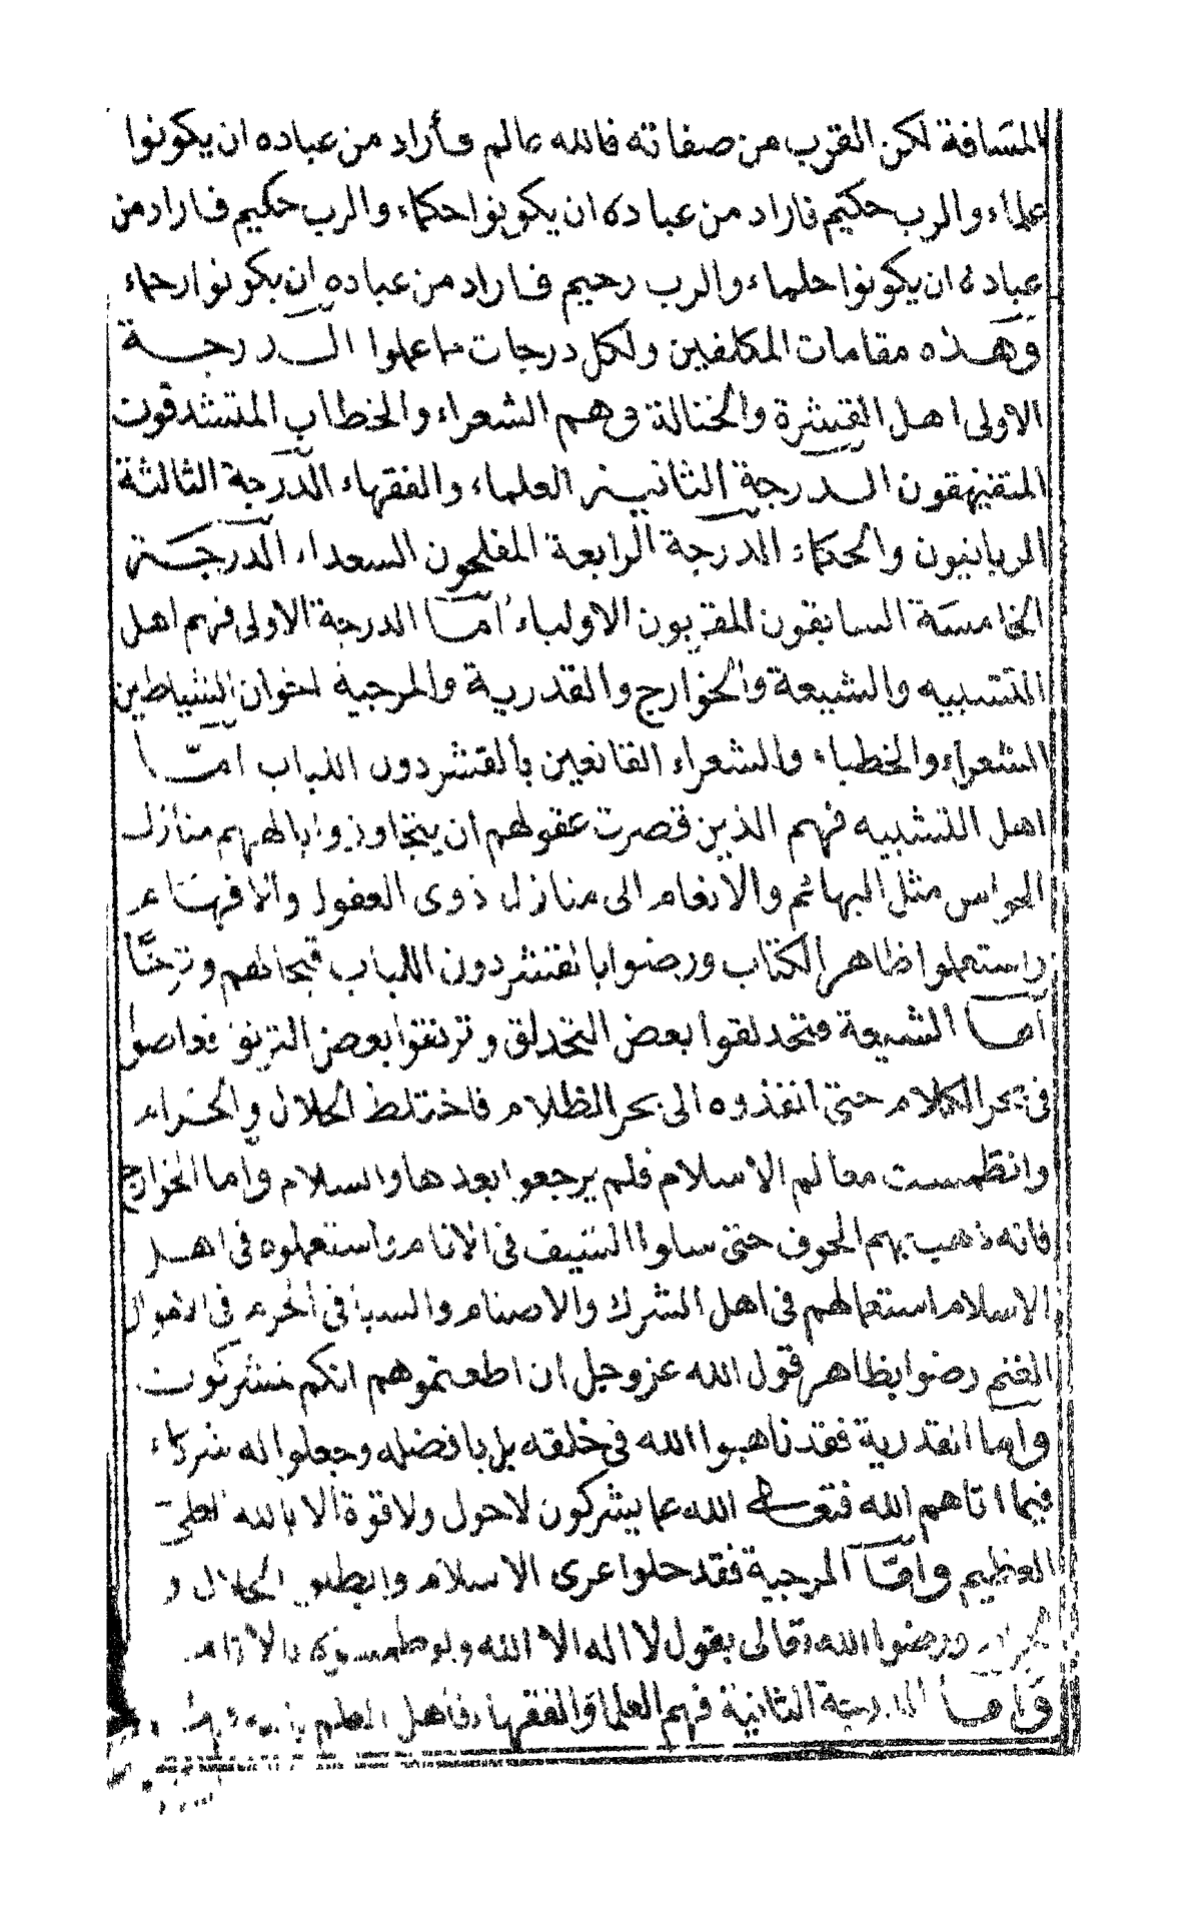 المسافة لكن القرب من صفاته فالله عالم فأراد من عباده ان يكونوا
علماء والرب حكيم فاراد من عباده ان يكونوا حكماء والرب حكيم فاراد من
عباده ان يكونوا حلماء والرب رحيم فاراد من عباده ان يكونوا رحماء
وهذه مقامات المكلفين ولكل درجات مما عملوا الدرجة
الاولى اهل القشرة والحثالة وهم الشعراء والخطاب المتشدقون
المتفيهقون الدرجة الثانية العلماء والفقهاء الدرجة الثالثة
الربانيون والحكماء الدرجة الرابعة المفلحون السعداء الدرجة
الخامسة السابقون المقربون الاولياء اما الدرجة الاولى فهم اهل
التشبيه والشيعة والخوارج والقدرية والمرجية اخوان الشياطين
الشعراء والخطباء والشعراء القانعين بالقشر دون اللباب امّا
اهل التشبيه فهم الذين قصرت عقولهم ان يتجاوزوا بالههم منازل
الحواس مثل البهائم والانعام الى منازل ذوى العقول والافهام
واستعملوا ظاهر الكتاب ورضوا بالقشر دون اللباب قبحا لهم وترحًا
اما الشيعة فتحدلقوا بعض التحدلق وتزنقوا بعض التزنق فغاصوا
فى بحر الكلام حتى انفذوه الى بحر الظلام فاختلط الحلال والحرام
وانطمست معالم الاسلام فلم يرجعوا بعدها والسلام واما الخوارج
فانه ذهب بهم الخوف حتى سلوا السيف فى الانام واستعملوه فى اهل
الاسلام استعمالهم فى اهل الشرك والاصنام والسبا فى الحرم فى الاموال
الغنم رضوا بظاهر قول الله عز وجل ان اطعتموهم انكم لمشركون
واما القدرية فقد ناهبوا الله فى خلقه بل بافضله وجعلوا له شركاء
فيما اتاهم الله فتعالى الله عما يشركون لا حول ولا قوة الا بالله العلى
العظيم وامّا المرجية فقد حلوا عرى الاسلام وابطلوا الحلال و
ورضوا الله تعالى بقول لا اله الا الله
واما الدرجة الثانية فهم العلما والفقها فأهل العلم